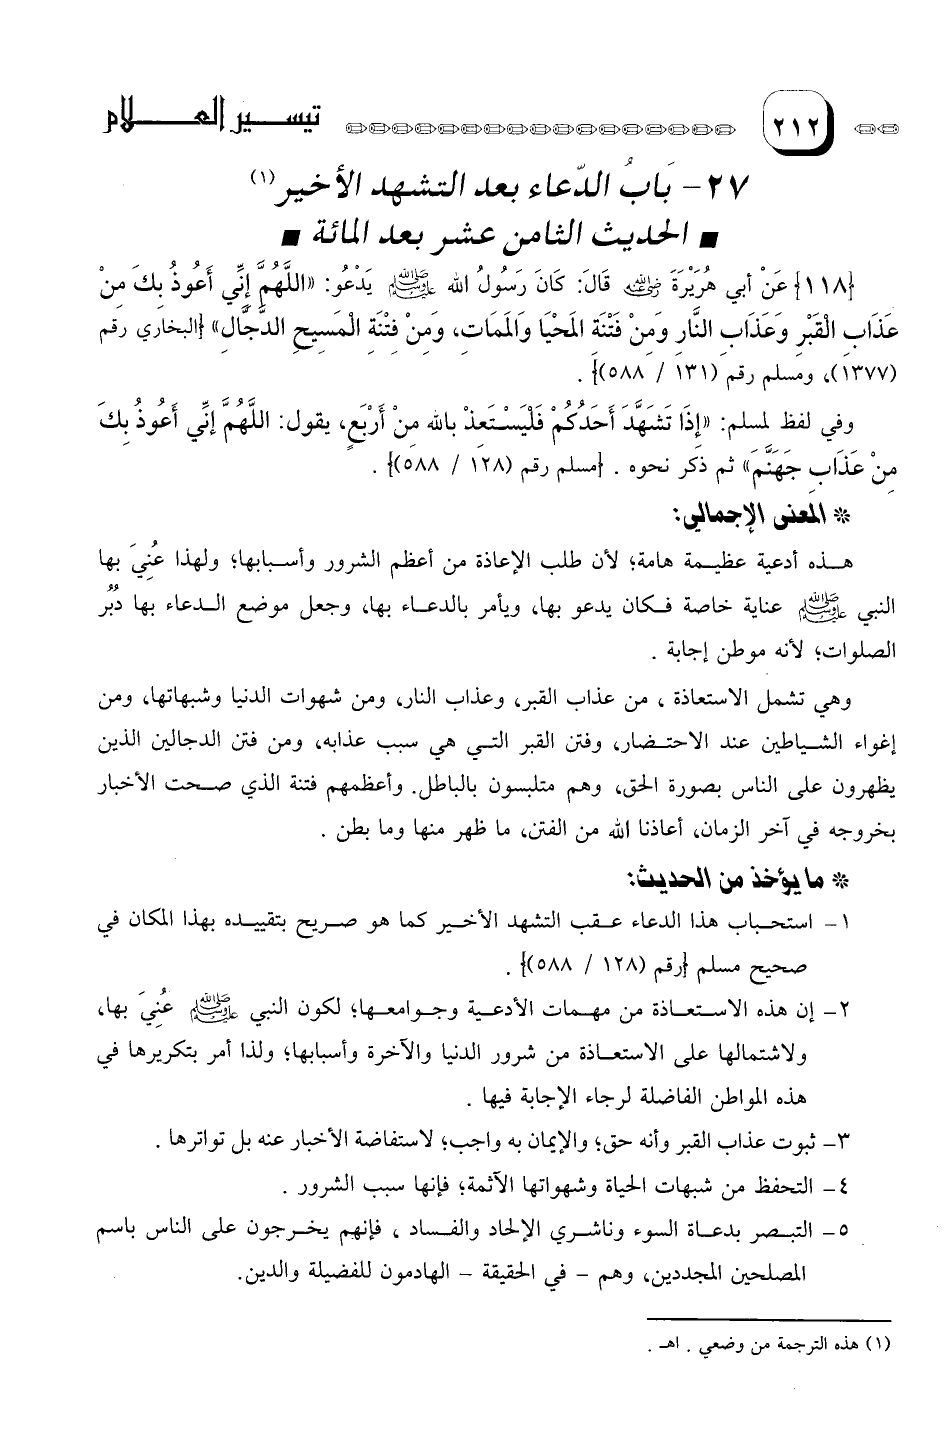 ٢١٢ تيسير العلام
٢٧ - بَابُ الدّعاء بعد التشهد الأخير (١)
■ الحديث الثامن عشر بعد المائة ■
{١١٨} عَنْ أبي هُرَيْرَةَ رضي الله عنه قَالَ: كَانَ رَسُولُ الله ﷺ يَدْعُو: «اللَّهُمَّ إِنِّي أَعُوذُ بِكَ مِنْ
عَذَابِ الْقَبْرِ وَعَذَابِ النَّارِ وَمِنْ فِتْنَةِ المَحْيَا وَالمَمَاتِ، وَمِنْ فِتْنَةِ الْمَسِيحِ الدَّجَّالِ» {البخاري رقم
(١٣٧٧)، ومسلم رقم (١٣١ / ٥٨٨)} .
وفي لفظ لمسلم: «إِذَا تَشَهَّدَ أَحَدُكُمْ فَلْيَسْتَعِذْ بالله مِنْ أَرْبَعٍ، يقول: اللَّهُمَّ إِنِّي أَعُوذُ بِكَ
مِنْ عَذَابِ جَهَنَّمَ» ثم ذكر نحوه . {مسلم رقم (١٢٨ / ٥٨٨)} .
* المعنى الإجمالي:
هذه أدعية عظيمة هامة؛ لأن طلب الإعاذة من أعظم الشرور وأسبابها؛ ولهذا عُنِيَ بها
النبي ﷺ عناية خاصة فكان يدعو بها، ويأمر بالدعاء بها، وجعل موضع الدعاء بها دُبُر
الصلوات؛ لأنه موطن إجابة .
وهي تشمل الاستعاذة ، من عذاب القبر، وعذاب النار، ومن شهوات الدنيا وشبهاتها، ومن
إغواء الشياطين عند الاحتضار، وفتن القبر التي هي سبب عذابه، ومن فتن الدجالين الذين
يظهرون على الناس بصورة الحق، وهم متلبسون بالباطل. وأعظمهم فتنة الذي صحت الأخبار
بخروجه في آخر الزمان، أعاذنا الله من الفتن، ما ظهر منها وما بطن .
* ما يؤخذ من الحديث:
١- استحباب هذا الدعاء عقب التشهد الأخير كما هو صريح بتقييده بهذا المكان في
صحيح مسلم {رقم (١٢٨ / ٥٨٨)} .
٢- إن هذه الاستعاذة من مهمات الأدعية وجوامعها؛ لكون النبي ﷺ عُنِيَ بها،
ولاشتمالها على الاستعاذة من شرور الدنيا والآخرة وأسبابها؛ ولذا أمر بتكريرها في
هذه المواطن الفاضلة لرجاء الإجابة فيها .
٣- ثبوت عذاب القبر وأنه حق؛ والإيمان به واجب؛ لاستفاضة الأخبار عنه بل تواترها .
٤- التحفظ من شبهات الحياة وشهواتها الآثمة؛ فإنها سبب الشرور .
٥- التبصر بدعاة السوء وناشري الإلحاد والفساد ، فإنهم يخرجون على الناس باسم
المصلحين المجددين، وهم - في الحقيقة - الهادمون للفضيلة والدين.
(١) هذه الترجمة من وضعي . اهـ .